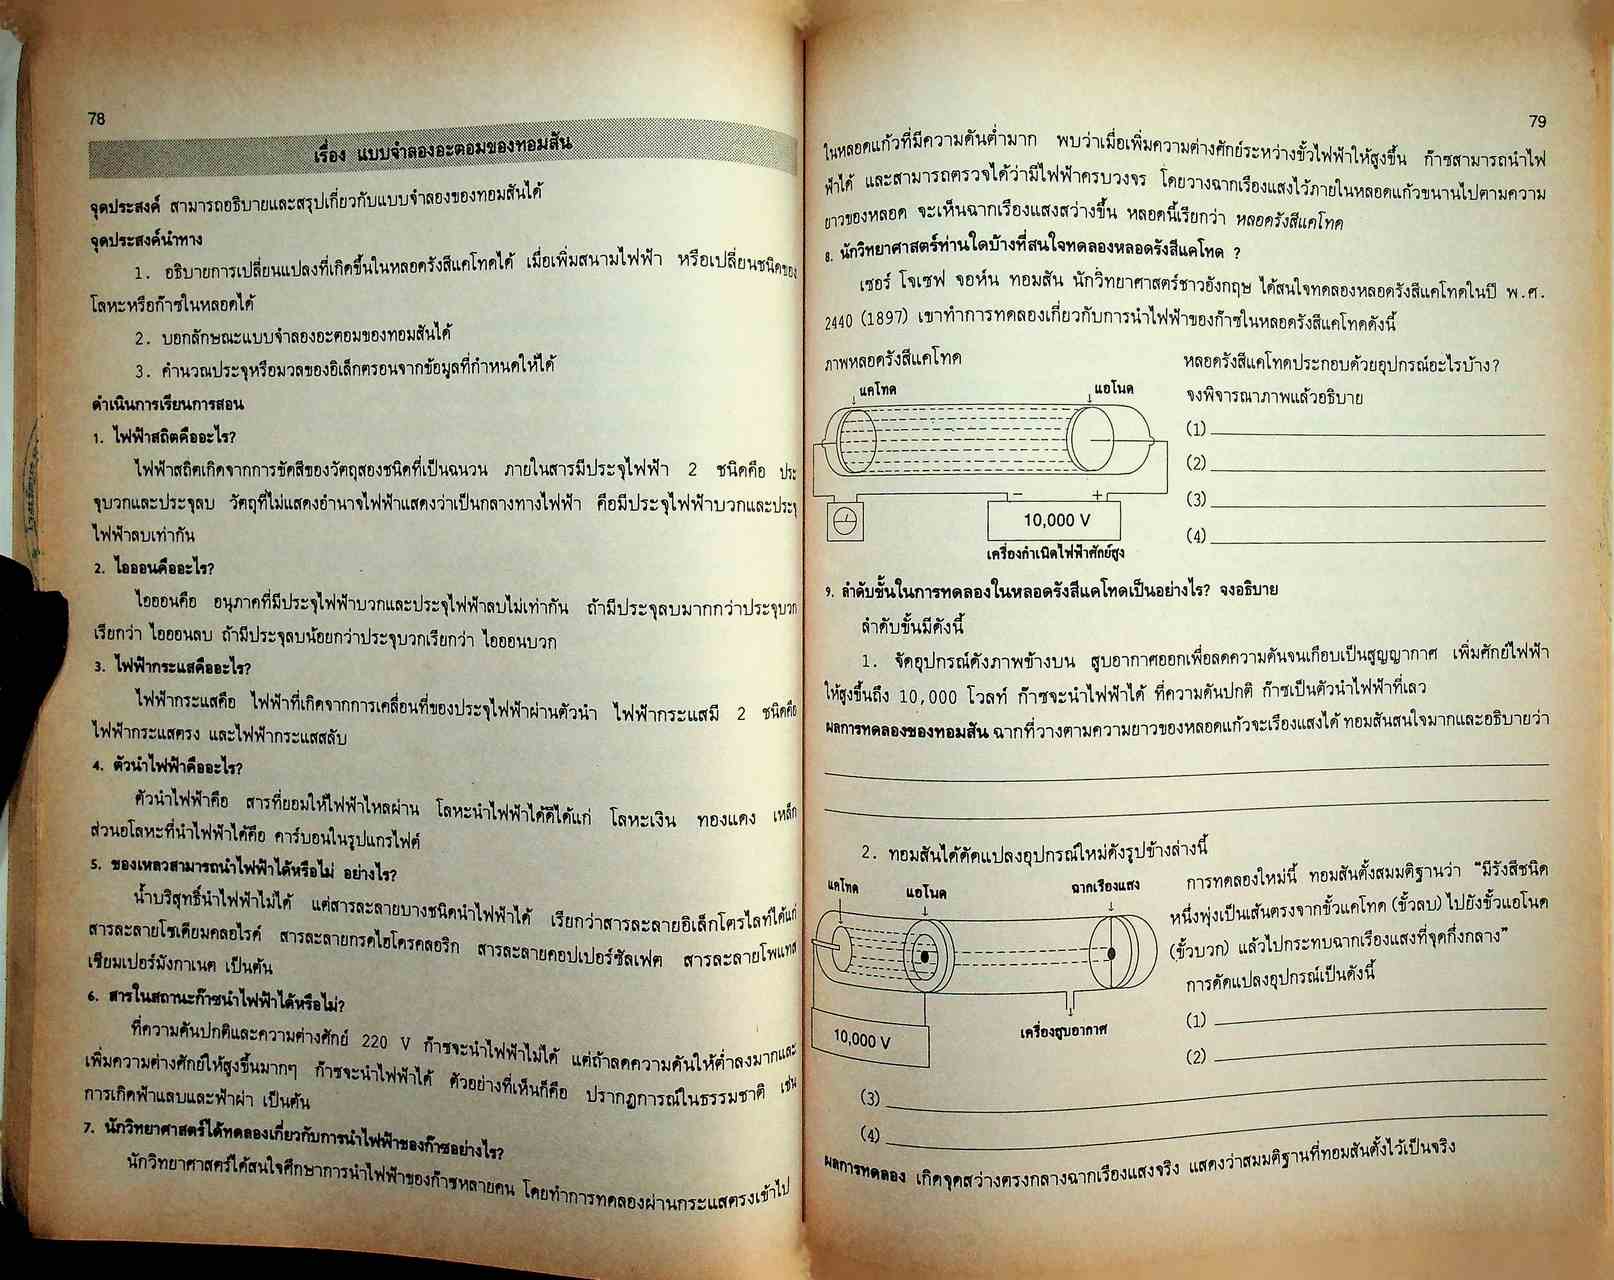 78
เรื่อง แบบจำลองอะตอมของทอมสัน
จุดประสงค์ สามารถอธิบายและสรุปเกี่ยวกับแบบจำลองของทอมสันได้
จุดประสงค์นำทาง
1. อธิบายการเปลี่ยนแปลงที่เกิดขึ้นในหลอดรังสีแคโทดได้ เมื่อเพิ่มสนามไฟฟ้า หรือเปลี่ยนชนิดของ
โลหะหรือก๊าซในหลอดได้
2. บอกลักษณะแบบจำลองอะตอมของทอมสันได้
3. คำนวณประจุหรือมวลของอิเล็กตรอนจากข้อมูลที่กำหนดให้ได้
ดำเนินการเรียนการสอน
1. ไฟฟ้าสถิตคืออะไร?
ไฟฟ้าสถิตเกิดจากการขัดสีของวัตถุสองชนิดที่เป็นฉนวน ภายในสารมีประจุไฟฟ้า 2 ชนิดคือ ประ
จุบวกและประจุลบ วัตถุที่ไม่แสดงอำนาจไฟฟ้าแสดงว่าเป็นกลางทางไฟฟ้า คือมีประจุไฟฟ้าบวกและประจุ
ไฟฟ้าลบเท่ากัน
2. ไอออนคืออะไร?
ไอออนคือ อนุภาคที่มีประจุไฟฟ้าบวกและประจุไฟฟ้าลบไม่เท่ากัน ถ้ามีประจุลบมากกว่าประจุบวก
เรียกว่า ไอออนลบ ถ้ามีประจุลบน้อยกว่าประจุบวกเรียกว่า ไอออนบวก
3. ไฟฟ้ากระแสคืออะไร?
ไฟฟ้ากระแสคือ ไฟฟ้าที่เกิดจากการเคลื่อนที่ของประจุไฟฟ้าผ่านตัวนำ ไฟฟ้ากระแสมี 2 ชนิดคือ
ไฟฟ้ากระแสตรง และไฟฟ้ากระแสสลับ
4. ตัวนำไฟฟ้าคืออะไร?
ตัวนำไฟฟ้าคือ สารที่ยอมให้ไฟฟ้าไหลผ่าน โลหะนำไฟฟ้าได้ดีได้แก่ โลหะเงิน ทองแดง เหล็ก
ส่วนอโลหะที่นำไฟฟ้าได้คือ คาร์บอนในรูปแกรไฟต์
5. ของเหลวสามารถนำไฟฟ้าได้หรือไม่ อย่างไร?
น้ำบริสุทธิ์นำไฟฟ้าไม่ได้ แต่สารละลายบางชนิดนำไฟฟ้าได้ เรียกว่าสารละลายอิเล็กโตรไลท์ได้แก่
สารละลายโซเดียมคลอไรด์ สารละลายกรดไฮโดรคลอริก สารละลายคอปเปอร์ซัลเฟต สารละลายโพแทส
เซียมเปอร์มังกาเนต เป็นต้น
6. สารในสถานะก๊าซนำไฟฟ้าได้หรือไม่?
ที่ความดันปกติและความต่างศักย์ 220 V ก๊าซจะนำไฟฟ้าไม่ได้ แต่ถ้าลดความดันให้ต่ำลงมากและ
เพิ่มความต่างศักย์ให้สูงขึ้นมากๆ ก๊าซจะนำไฟฟ้าได้ ตัวอย่างที่เห็นก็คือ ปรากฏการณ์ในธรรมชาติ เช่น
การเกิดฟ้าแลบและฟ้าผ่า เป็นต้น
7. นักวิทยาศาสตร์ได้ทดลองเกี่ยวกับการนำไฟฟ้าของก๊าซอย่างไร?
นักวิทยาศาสตร์ได้สนใจศึกษาการนำไฟฟ้าของก๊าซหลายคน โดยทำการทดลองผ่านกระแสตรงเข้าไป
79
ในหลอดแก้วที่มีความดันต่ำมาก พบว่าเมื่อเพิ่มความต่างศักย์ระหว่างขั้วไฟฟ้าให้สูงขึ้น ก๊าซสามารถนำไฟ
ฟ้าได้ และสามารถตรวจได้ว่ามีไฟฟ้าครบวงจร โดยวางฉากเรืองแสงไว้ภายในหลอดแก้วขนานไปตามความ
ยาวของหลอด จะเห็นฉากเรืองแสงสว่างขึ้น หลอดนี้เรียกว่า หลอดรังสีแคโทด
8. นักวิทยาศาสตร์ท่านใดบ้างที่สนใจทดลองหลอดรังสีแคโทด ?
เซอร์ โจเซฟ จอห์น ทอมสัน นักวิทยาศาสตร์ชาวอังกฤษ ได้สนใจทดลองหลอดรังสีแคโทดในปี พ.ศ.
2440 (1897) เขาทำการทดลองเกี่ยวกับการนำไฟฟ้าของก๊าซในหลอดรังสีแคโทดดังนี้
ภาพหลอดรังสีแคโทด
แคโทด
แอโนด
− +
10,000 V
เครื่องกำเนิดไฟฟ้าศักย์สูง
หลอดรังสีแคโทดประกอบด้วยอุปกรณ์อะไรบ้าง?
จงพิจารณาภาพแล้วอธิบาย
(1)
(2)
(3)
(4)
9. ลำดับขั้นในการทดลองในหลอดรังสีแคโทดเป็นอย่างไร? จงอธิบาย
ลำดับขั้นมีดังนี้
1. จัดอุปกรณ์ดังภาพข้างบน สูบอากาศออกเพื่อลดความดันจนเกือบเป็นสูญญากาศ เพิ่มศักย์ไฟฟ้า
ให้สูงขึ้นถึง 10,000 โวลท์ ก๊าซจะนำไฟฟ้าได้ ที่ความดันปกติ ก๊าซเป็นตัวนำไฟฟ้าที่เลว
ผลการทดลองของทอมสัน ฉากที่วางตามความยาวของหลอดแก้วจะเรืองแสงได้ ทอมสันสนใจมากและอธิบายว่า
2. ทอมสันได้ดัดแปลงอุปกรณ์ใหม่ดังรูปข้างล่างนี้
แคโทด
แอโนด
ฉากเรืองแสง
เครื่องสูบอากาศ
10,000 V
การทดลองใหม่นี้ ทอมสันตั้งสมมติฐานว่า "มีรังสีชนิด
หนึ่งพุ่งเป็นเส้นตรงจากขั้วแคโทด (ขั้วลบ) ไปยังขั้วแอโนด
(ขั้วบวก) แล้วไปกระทบฉากเรืองแสงที่จุดกึ่งกลาง"
การดัดแปลงอุปกรณ์เป็นดังนี้
(1)
(2)
(3)
(4)
ผลการทดลอง เกิดจุดสว่างตรงกลางฉากเรืองแสงจริง แสดงว่าสมมติฐานที่ทอมสันตั้งไว้เป็นจริง